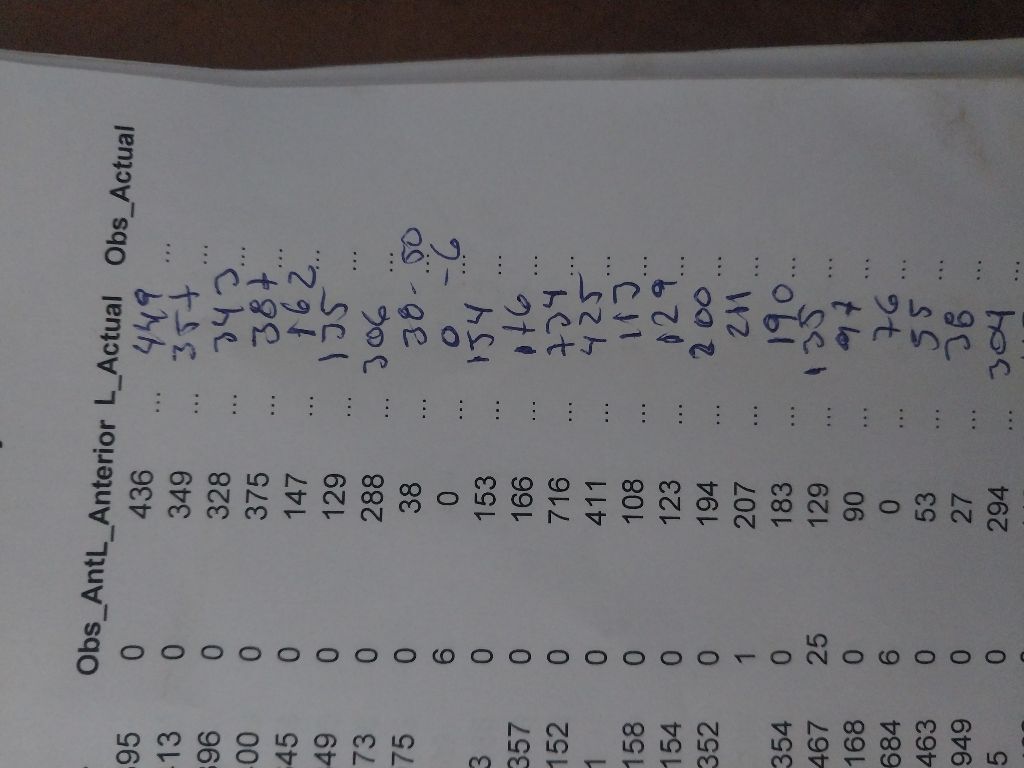 Obs_AntL_Anterior L_Actual Obs_Actual
395 0 436 ... 449
413 0 349 ... 357 ...
396 0 328 ... 343 ...
400 0 375 ... 387 ...
345 0 147 ... 162 ...
49 0 129 ... 135 ...
73 0 288 ... 306 ...
75 0 38 ... 38 - 50 ...
6 0 ... 0 -6 ...
3 0 153 ... 154 ...
357 0 166 ... 176 ...
152 0 716 ... 734 ...
1 0 411 ... 425 ...
158 0 108 ... 113 ...
154 0 123 ... 129 ...
352 0 194 ... 200 ...
1 207 ... 211 ...
354 0 183 ... 190 ...
467 25 129 ... 135 ...
168 0 90 ... 97 ...
684 6 0 ... 76 ...
463 0 53 ... 55 ...
949 0 27 ... 38 ...
5 0 294 ... 304 ...